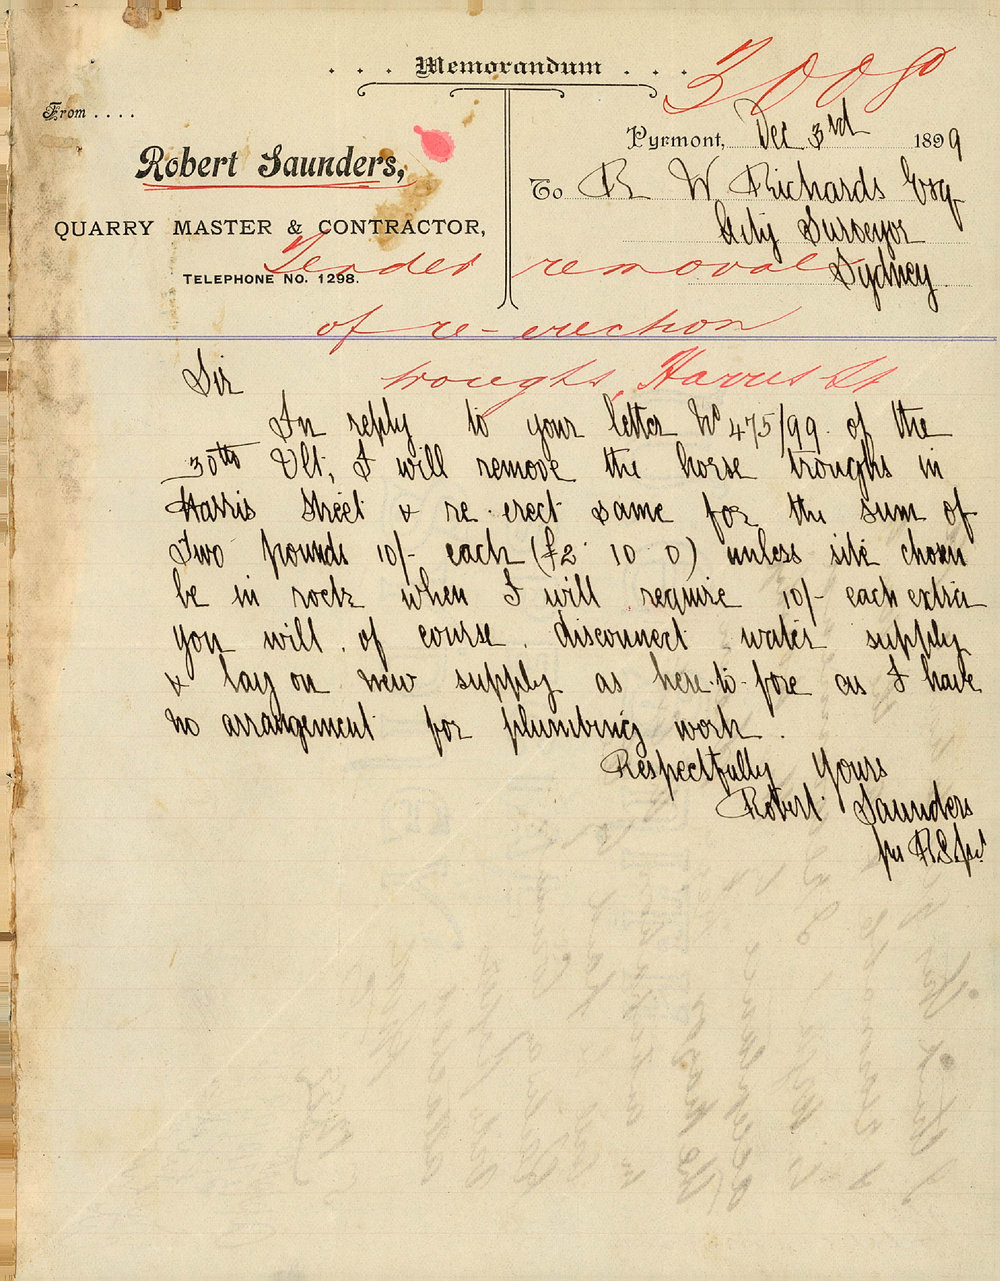 Memorandum
3008
From ....
Pyrmont, Dec 3rd 1899
Robert Saunders,
To R W Richards Esq
QUARRY MASTER & CONTRACTOR,
City Surveyor
TELEPHONE NO. 1298.
Sydney
Tender removal
of re-erection
troughs, Harris St
Sir
In reply to your letter No 475/99 of the
30th Ult, I will remove the horse troughs in
Harris Street & re-erect same for the sum of
Two pounds 10/- each (£2 10 0) unless site chosen
be in rock when I will require 10/- each extra
you will of course disconnect water supply
& lay on new supply as here-to-fore as I have
no arrangement for plumbing work.
Respectfully Yours
Robert Saunders
per